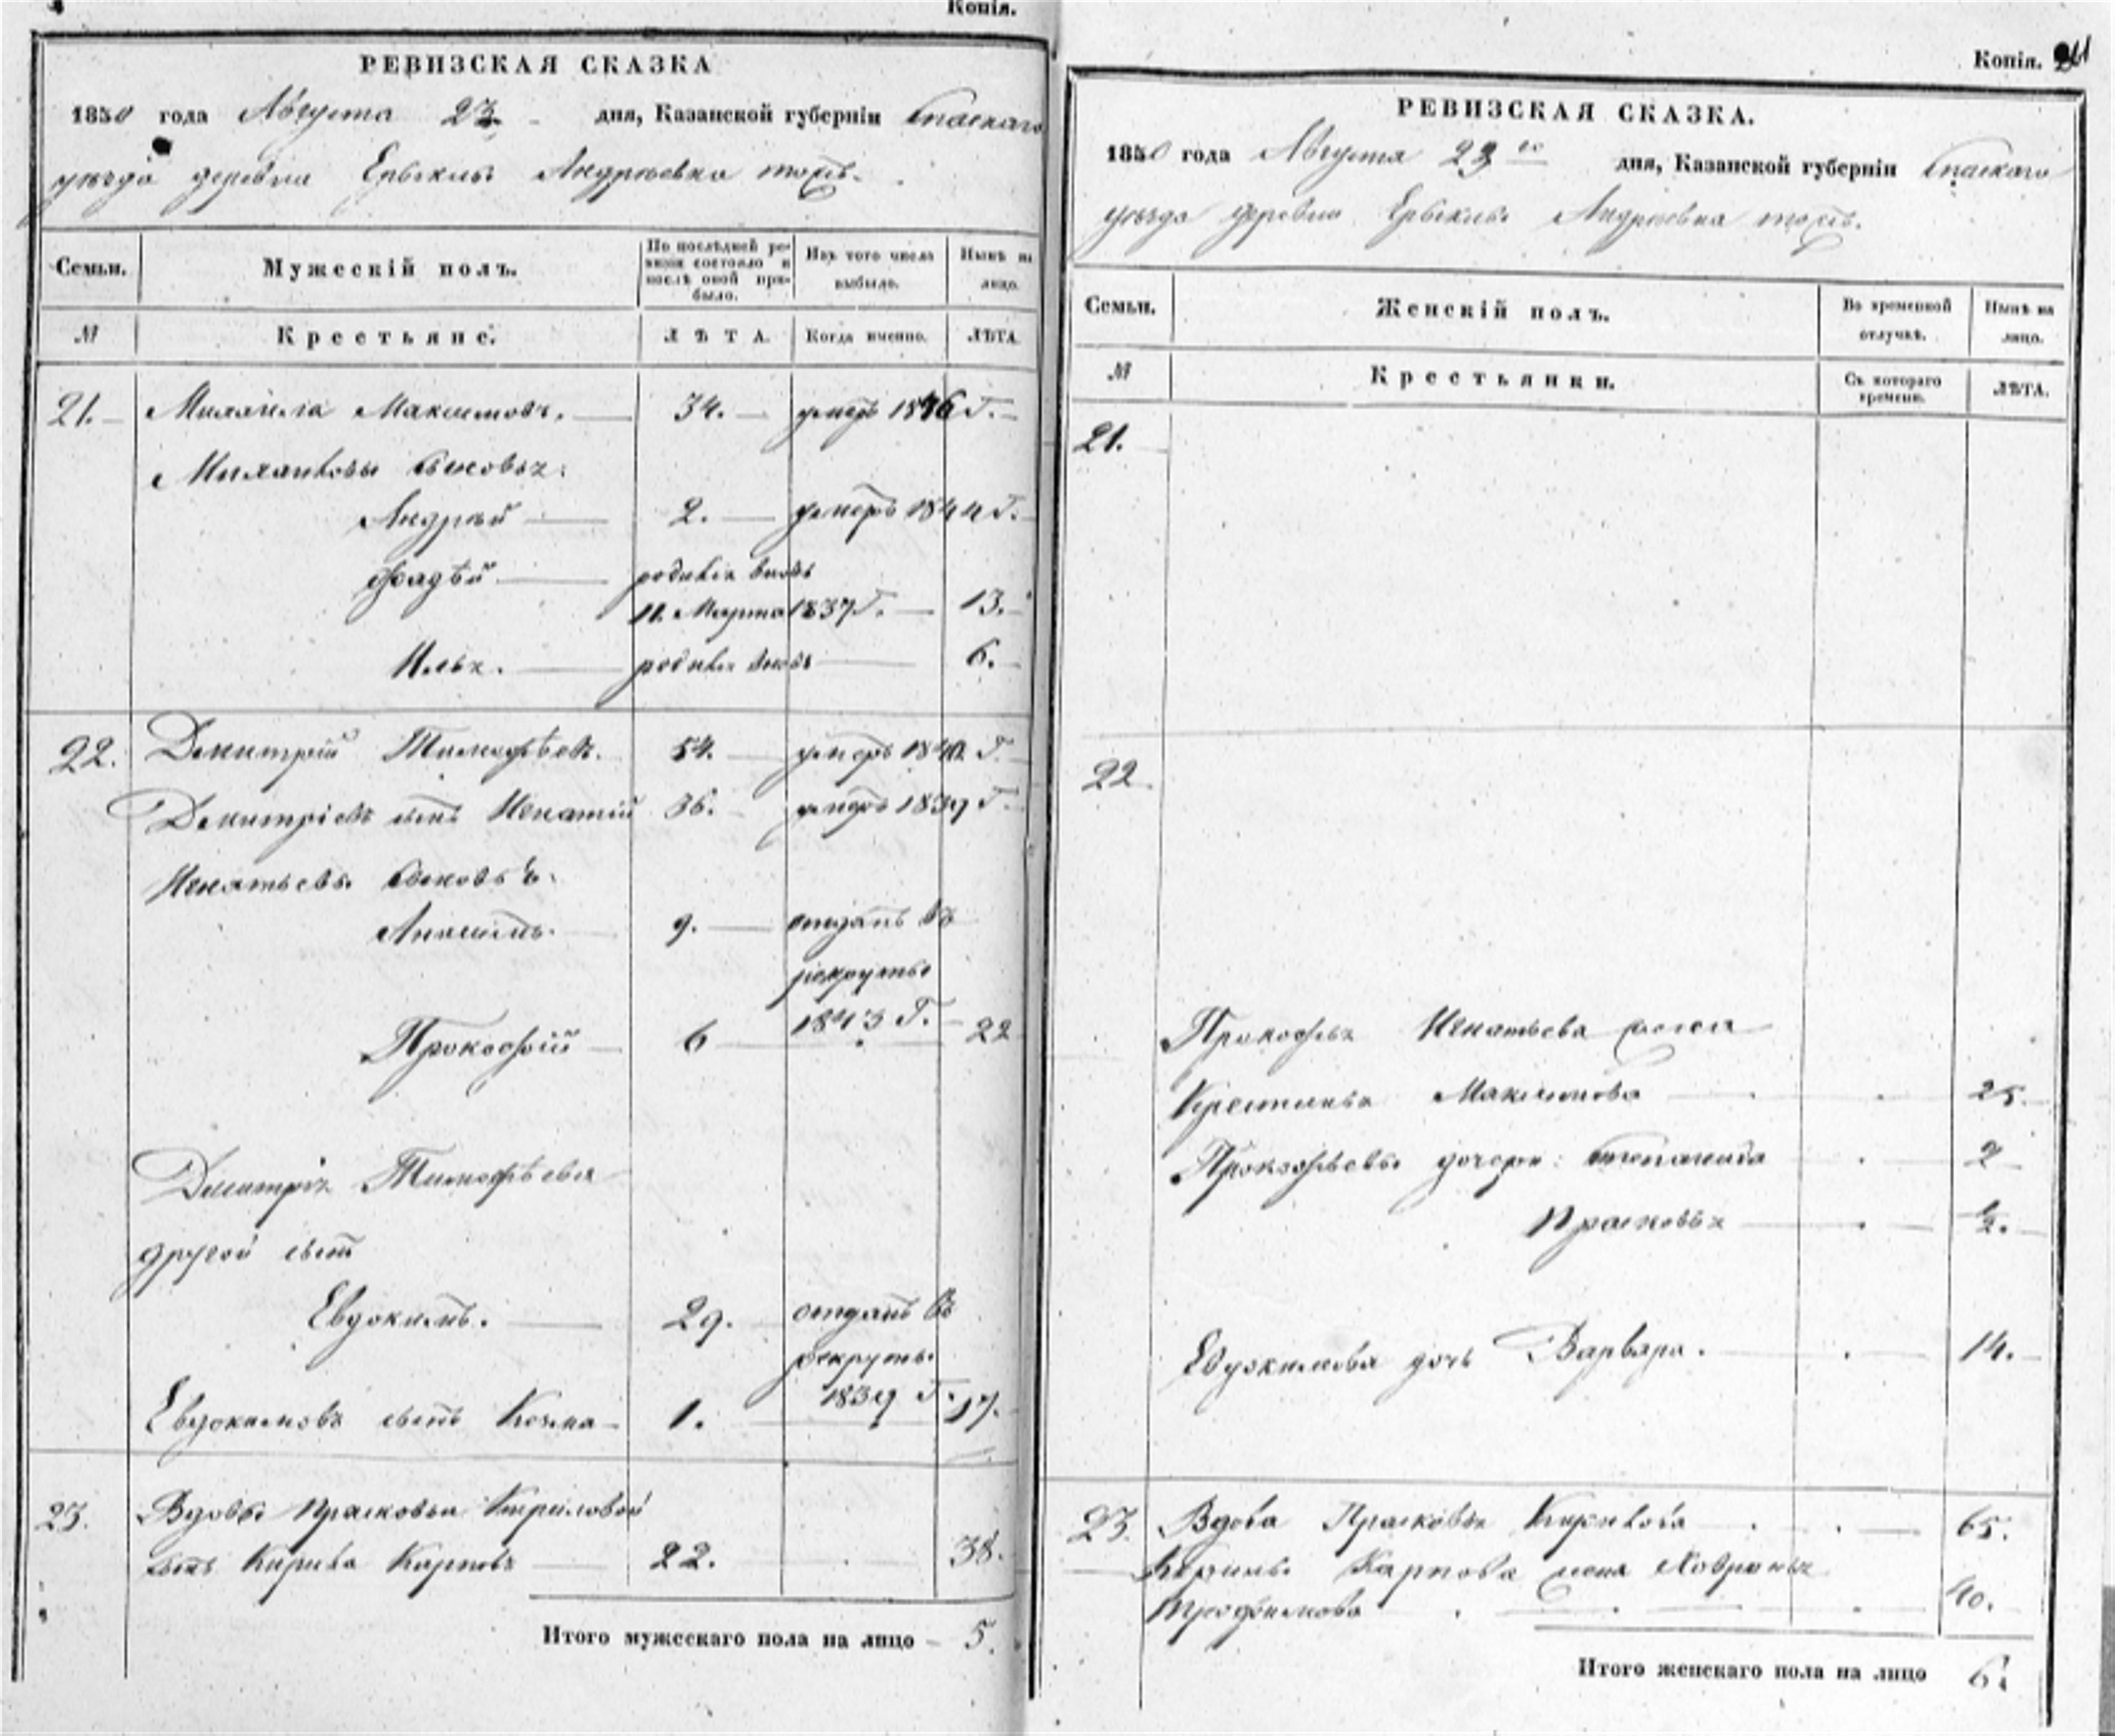 Копія.
РЕВИЗСКАЯ СКАЗКА
1850 года Августа 23 дня, Казанской губерніи Спаскаго
уѣзда деревни Ерыкли Андреевка тожъ.
Семьи. Мужескій полъ. По послѣдней ревизіи состояло и послѣ оной прибыло. Изъ того числа выбыло. Нынѣ на лицо.
№ Крестьяне. ЛѢТА. Когда именно. ЛѢТА.
21. Михайла Максимовъ. 34. умеръ 1846 Г.
Михайловы сыновья:
Андрей 2. умеръ 1844 Г.
Фадѣй родился вновь
11. Марта 1837 Г. 13.
Илья. родился вновь 6.
22. Дмитрій Тимофѣевъ. 54. умеръ 1840 Г.
Дмитріевъ сынъ Игнатій 36. умеръ 1839 Г.
Игнатьевы сыновья:
9. отданъ въ
рекруты
1843 Г.
Прокофій 6 22
Дмитрія Тимофѣева
другой сынъ
Евдокимъ. 29. отданъ въ
рекруты
1839 Г.
Евдокимовъ сынъ Козма 1. 17.
23. Вдовы Прасковьи Кириловой
сынъ Карповъ 22. 38.
Итого мужескаго пола на лицо 5.
Копія.
РЕВИЗСКАЯ СКАЗКА.
1850 года Августа 23 го дня, Казанской губерніи Спаскаго
уѣзда деревни Ерыкли Андреевка тожъ.
Семьи. Женскій полъ. Во временной отлучкѣ. Нынѣ на лицо.
№ Крестьянки. Съ котораго времени. ЛѢТА.
21.
22.
Прокофья Игнатьева жена
Крестинья Максимова 25.
Прокофьевы дочери: Степанида 2
Прасковья 1/2.
Евдокимова дочь Варвара. 14.
23. Вдова Прасковья Кирилова 65.
Карпова жена Ховронья
Трофимова 40.
Итого женскаго пола на лицо 6.